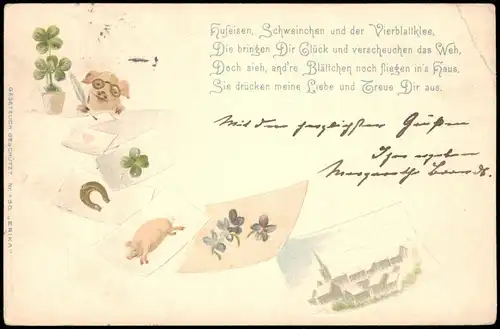 Hufeisen, Schweinchen und der Vierblattklee,
Die bringen Dir Glück und verscheuchen das Weh,
Doch sieh, and're Blättchen noch fliegen in's Haus,
Sie drücken meine Liebe und Treue Dir aus.
Mit den herzlichsten Grüßen
Margarethe
GESETZLICH GESCHÜTZT Nr. 150 „ERIKA"